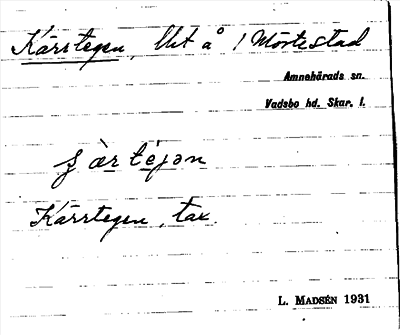 Kärrtegen, Utt å 1 Mörtestad
Amnehärads sn.
Vadsbo hd. Skar. l.
Kärrtegen, tax.
L. MADSÉN 1931